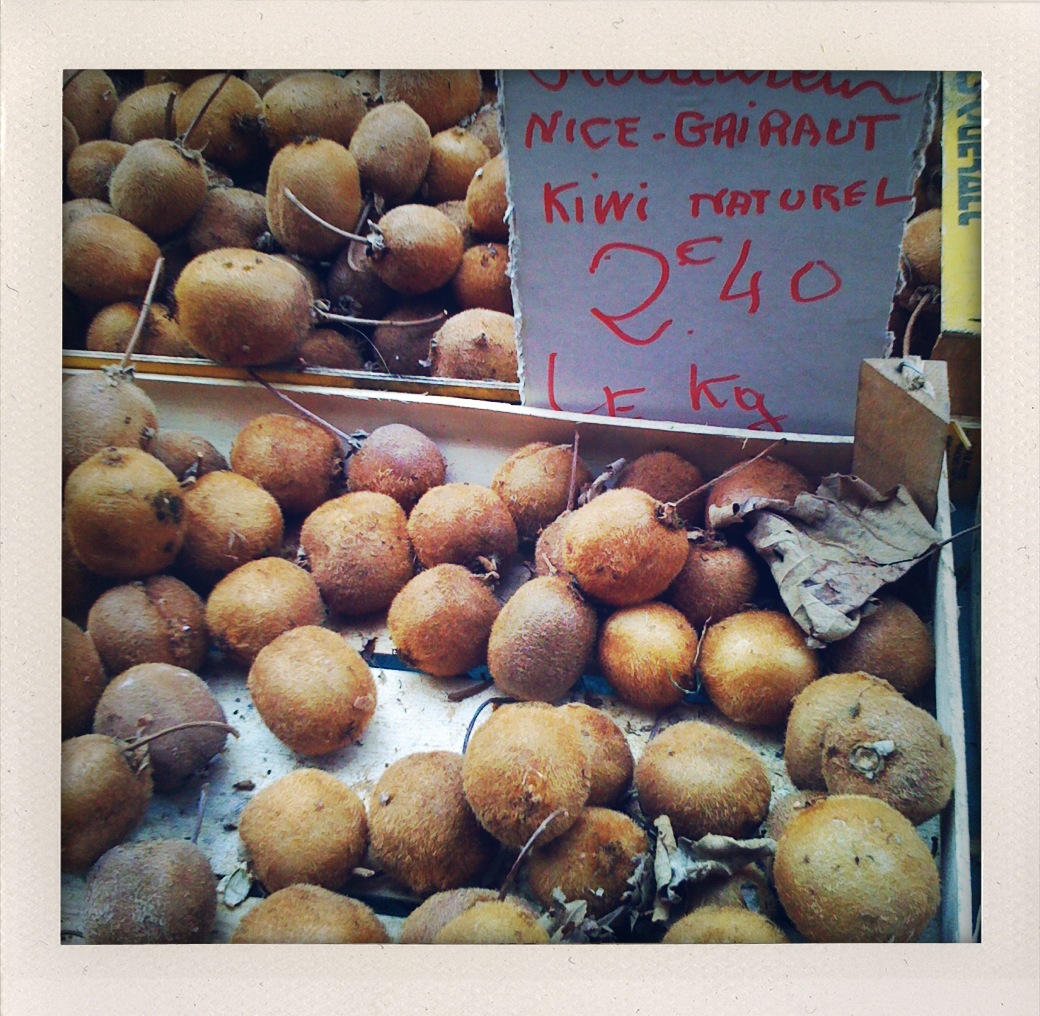 NICE-GAiRAUT
KiWi NATUREL
2€40
LE Kg